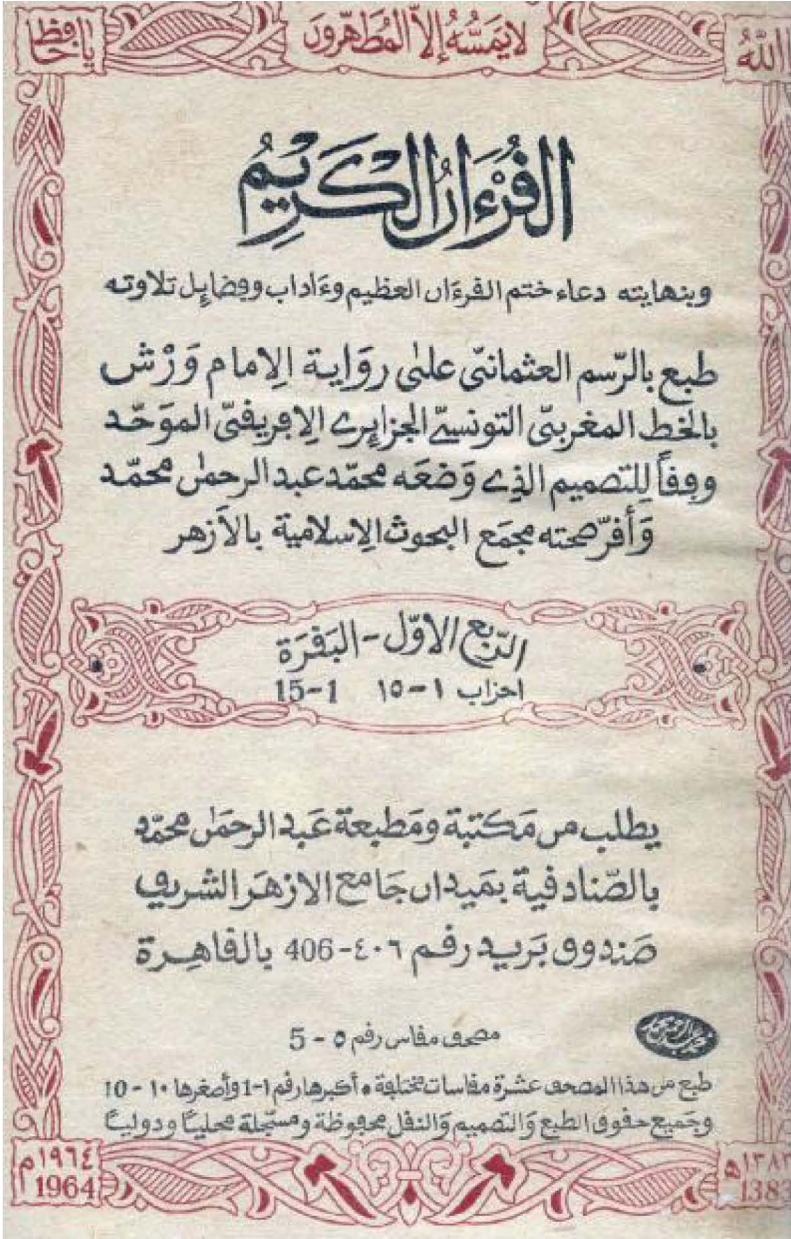 يا حافظ
لا يمسّه إلاّ المطهّرون
اللّٰه
القُرْءَانُ الْكَرِيمُ
وبنهايته دعاء ختم القرءَان العظيم وءَاداب وفضايِل تلاوته
طبع بالرّسم العثمانيّ على رِوَاية الإمام وَرْش
بالخط المغربيّ التونسيّ الجزايِري الإفريقيّ الموَحّد
وفقاً للتصميم الذي وَضعَه محمّد عبد الرحمٰن محمّد
وَأقرّ صحته مجمَع البحوث الإسلامية بالأزهر
الرّبع الأوّل - البَقَرَة
احزاب ١ - ١٥ 1-15
يطلب من مَكتبة ومَطبعة عَبد الرحمَٰن محمّد
بالصّنادقية بمَيدان جَامع الازهَر الشريف
صَندوق بَريد رقم ٤٠٦ - 406 بالقاهِرة
مصحف مقاس رقم ٥ - 5
طبع من هذا المصحف عشرة مقاسات مختلفة • أكبرها رقم ١-1 وأصغرها ١٠ - 10
وجَميع حقوق الطبع وَالتصميم وَالنقل محفوظة ومسَجّلة محليّاً ودوليّاً
١٩٦٤ م
1964
١٣٨٣ هـ
1383